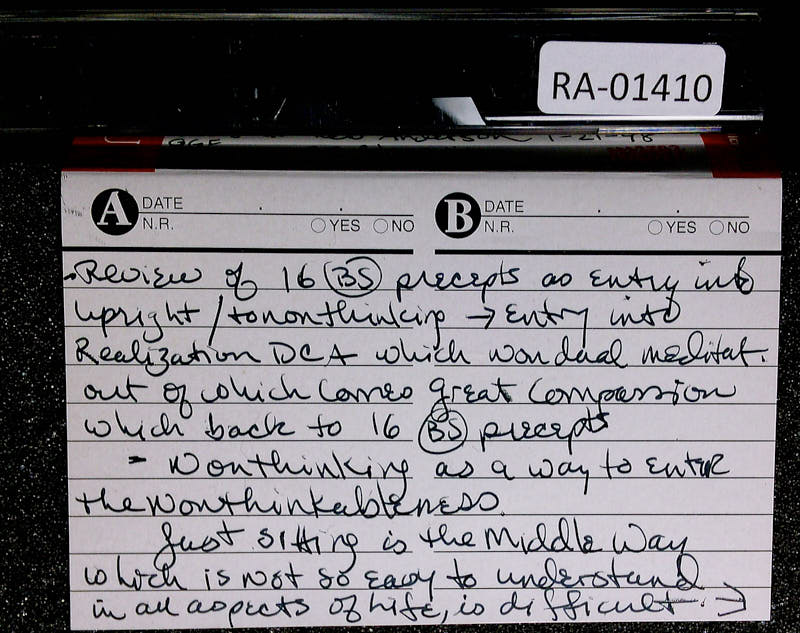 RA-01410
Anderson 1-21-98
A DATE
N.R. YES NO
B DATE
N.R. YES NO
- Review of 16 BS precepts as entry into
upright/to nonthinking → Entry into
Realization DCA which nondual meditat.
out of which comes great compassion
which back to 16 BS precepts
- Nonthinking as a way to enter
the Nonthinkableness.
Just sitting is the Middle Way
which is not so easy to understand
in all aspects of Life, is difficult. →